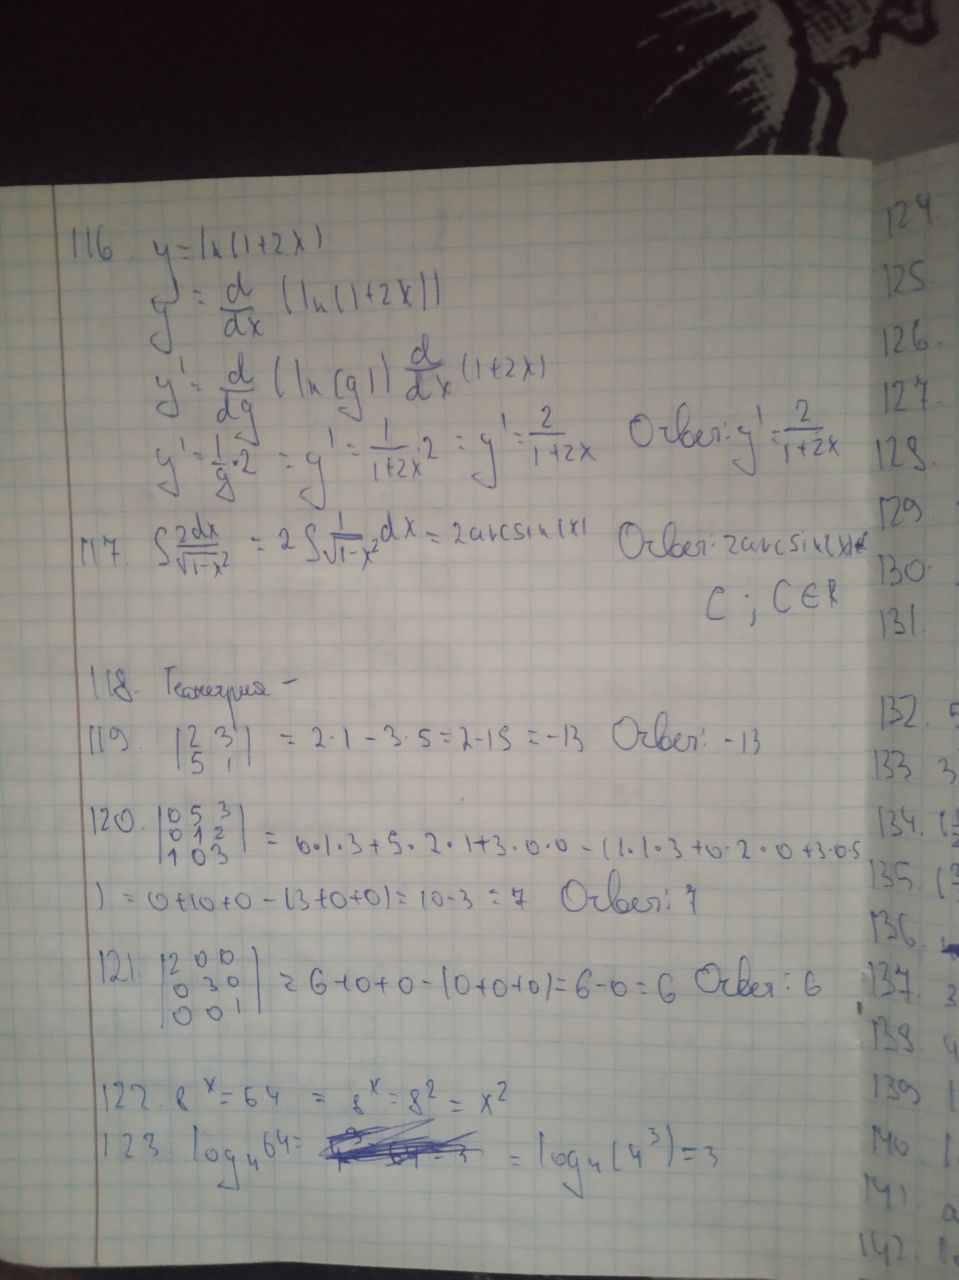 116. y=ln(1+2x)
y'= d/dx (ln(1+2x))
y'= d/dg (ln(g)) d/dx (1+2x)
y'= 1/g · 2 = y' = 1/(1+2x) · 2 = y' = 2/(1+2x) Ответ: y' = 2/(1+2x)
117. ∫ 2dx/√(1-x²) = 2∫ 1/√(1-x²) dx = 2arcsin(x) Ответ: 2arcsin(x)+
C ; C∈R
118. Геометрия -
119. |2 3| = 2·1 - 3·5 = 2-15 = -13 Ответ: -13
|5 1|
120. |0 5 3|
|0 1 2| = 0·1·3+5·2·1+3·0·0 - (1·1·3+0·2·0+3·0·5
|1 0 3|
) = 0+10+0 - (3+0+0) = 10-3 = 7 Ответ: 7
121. |2 0 0|
|0 3 0| = 6+0+0-(0+0+0)=6-0=6 Ответ: 6
|0 0 1|
122. 8^x = 64 = 8^x = 8² = x²
123. log₄64= = log₄(4³)=3
124.
125.
126.
127.
128.
129.
130.
131.
132. 5
133. 3
134. (
135. (
136.
137. 3
138. 4
139.
140.
141. a
142.